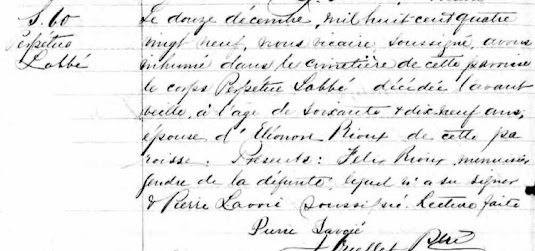 S. 60
Perpétue
Labbé
Le douze décembre, mil huit cent quatre
vingt neuf, nous vicaire, soussigné, avons
inhumé dans le cimetière de cette paroisse
le corps Perpétue Labbé décédée l'avant
veille, à l'âge de soixante & dix neuf ans,
épouse d'Eléonor Rioux de cette pa
roisse. Présents: Felix Rioux, menuisier
gendre de la défunte, lequel n'a su signer
& Pierre Lavoié soussigné. Lecture faite
Pierre Lavoié
Ptre